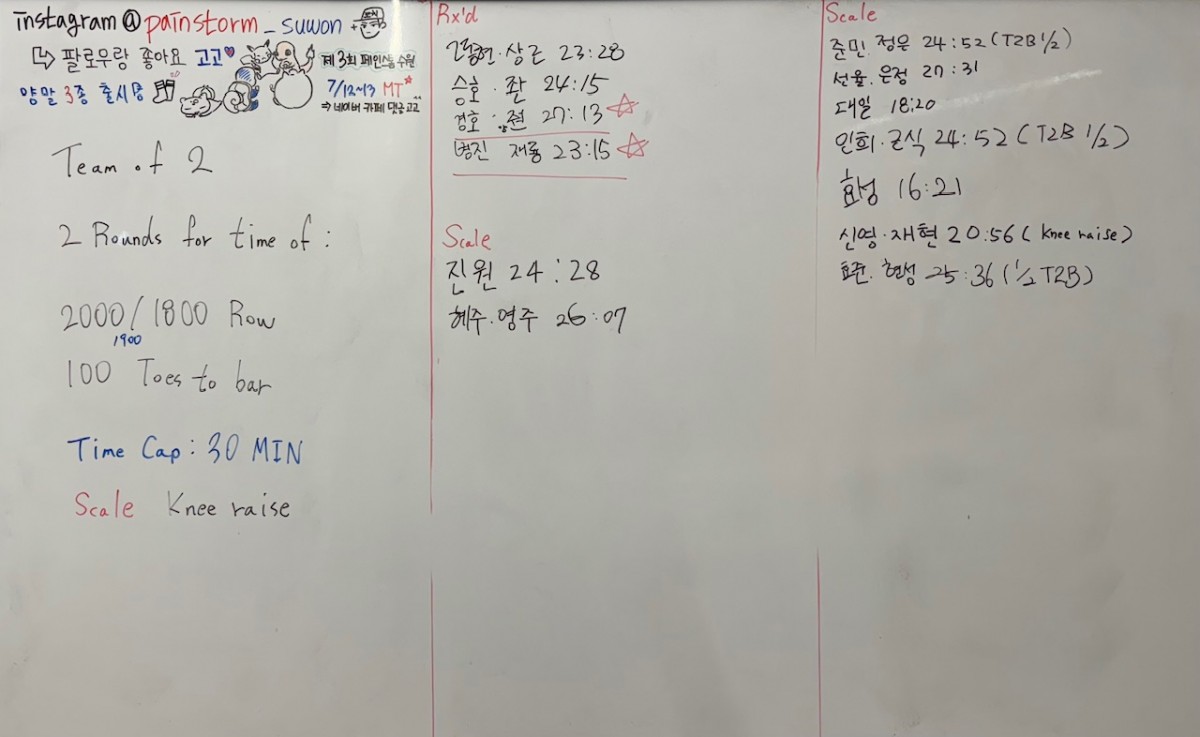 instagram @ painstorm_suwon
↳ 팔로우랑 좋아요 고고♥
양말 3종 출시중
제 3회 페인스톰 수원
7/12~13 MT
⇒ 네이버 카페 댓글 고고
Team of 2
2 Rounds for time of :
2000/1800 Row
1900
100 Toes to bar
Time Cap : 30 MIN
Scale Knee raise
Rx'd
상근 23:28
승호 · 좐 24:15
경호 · 27:13 ☆
병진 재룡 23:15 ☆
Scale
진원 24:28
혜주·영주 26:07
Scale
준민. 정은 24:52 (T2B 1/2)
선율. 은정 27:31
대일 18:20
인희·군식 24:52 (T2B 1/2)
효성 16:21
신영·재현 20:56 (Knee raise)
효준. 현성 25:36 (1/2 T2B)